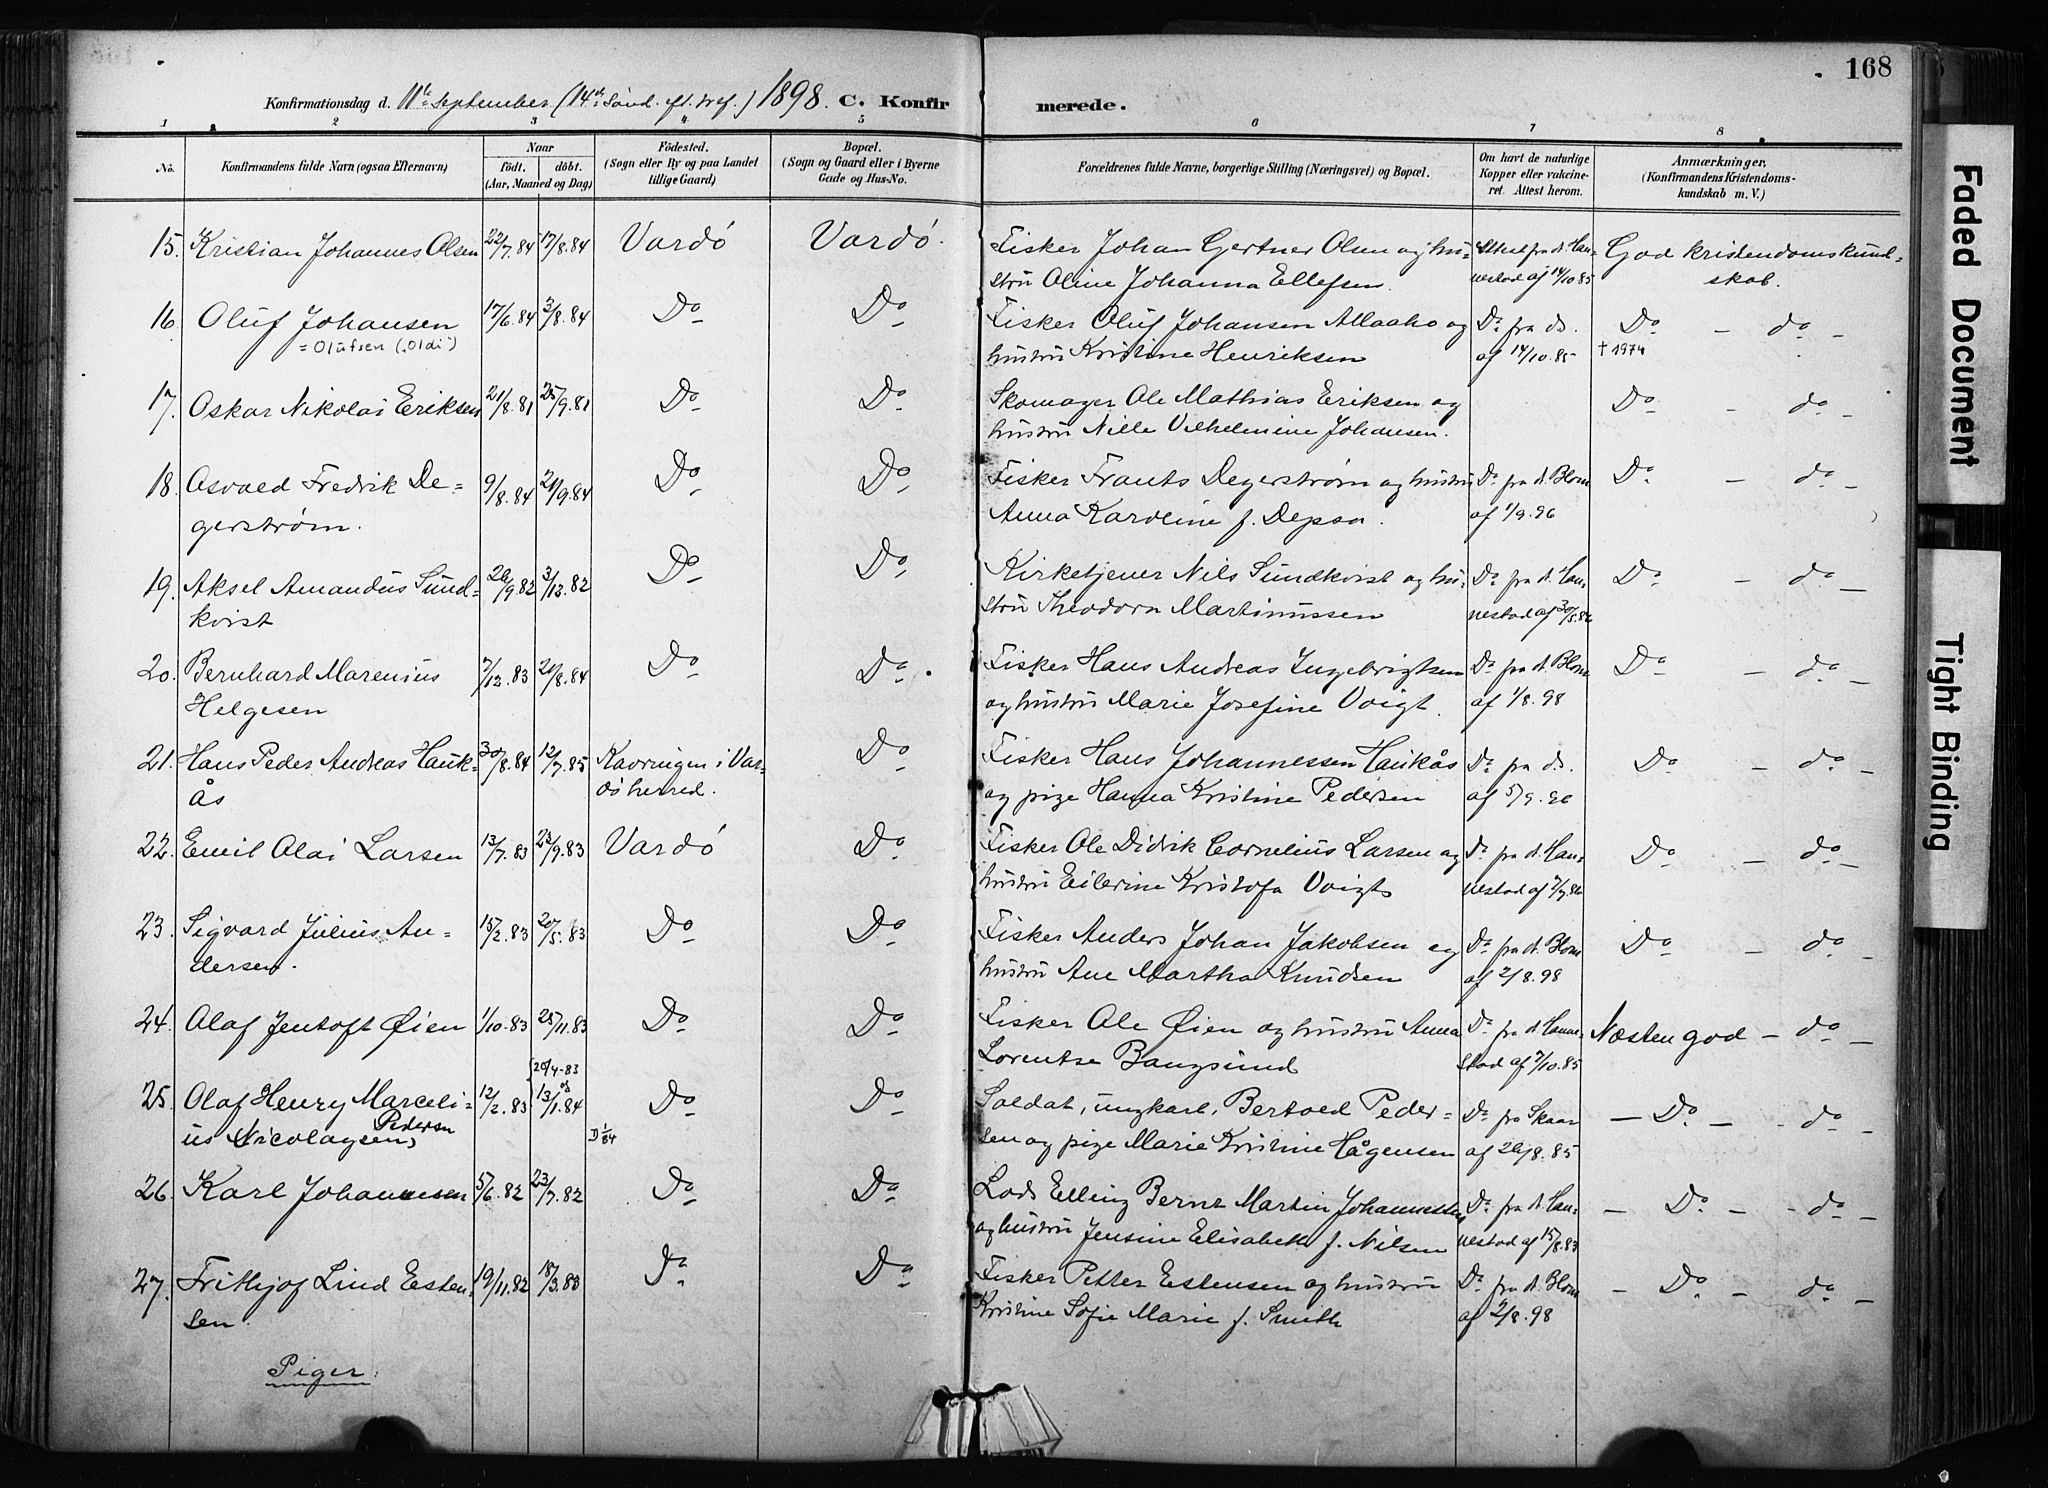 168
Konfirmationsdag d. 11te September (14de Sönd. eft. tref.) 1898. C. Konfirmerede.
1 2 3 4 5 6 7 8
No. Konfirmandens fulde Navn (ogsaa Efternavn) Naar Födt. döbt. (Aar, Maaned og Dag) Födested. (Sogn eller By og paa Landet tillige Gaard) Bopæl. (Sogn og Gaard eller i Byerne Gade og Hus-No. Forældrenes fulde Navne, borgerlige Stilling (Næringsvei) og Bopæl. Om havt de naturlige Kopper eller vaccineret. Attest herom. Anmærkninger, (Konfirmandens Kristendomskundskab m. V.)
15. Kristian Johannes Olsen 22/7.84 17/8.84 Vardö Vardö. Fisker Johan Gertner Olsen og hu- Attest fra d. Han- God kristendomskund-
stru Oline Johanna Ellefsen. nestad af 14/10 85 skab.
16. Oluf Johansen 17/6.84 3/8.84 Do Do Fisker Oluf Johansen Allaaho og Do fra do. Do - do -
= Olufsen ("Oldi") hustru Kristine Henriksen af 14/10.85 † 1974
17. Oskar Nikolai Eriksen 21/8.81 25/9.81 Do Do Skomager Ole Mathias Eriksen og Do - do -
hustru Nille Vilhelmine Johansen.
18. Osvald Fredrik De- 9/8.84 21/9.84 Do Do Fisker Frants Degerström og hustru Do fra d. Blom Do - do -
gerström. Anna Karoline f. af 1/9.96
19. Aksel Amandus Sund- 26/9.82 3/12.82 Do Do Kirketjener Nils Sundkvist og hu- Do fra d. Han- Do - do -
kvist stru Theodora Martinussen nestad af 30/5.86
20. Bernhard Marenius 7/12.83 24/8.84 Do Do Fisker Hans Andreas Ingebrigtsen Do fra d. Blom Do - do -
Helgesen og hustru Marie Josefine Voigt. af 1/8.98
21. Hans Peder Andreas Hauk- 30/8.84 12/7.85 Kavringen i Var- Do Fisker Hans Johannessen Haukås Do fra do. Do - do -
ås döherred. og pige Hanna Kristine Pedersen af 5/9.96
22. Emil Olai Larsen 13/7.83 23/9.83 Vardö Do Fisker Ole Didrik Cornelius Larsen og Do fra d. Han- Do - do -
hustru Eilerine Kristofa Voigt nestad af 7/7.86
23. Sigvard Julius An- 15/2.83 20/5.83 Do Do Fisker Anders Johan Jakobsen og Do fra d. Blom Do - do -
dersen. hustru Ane Martha Knudsen af 2/8.98
24. Olaf Jentoft Øien 1/10.83 25/11.83 Do Do Fisker Ole Øien og hustru Anna Do fra d. Hanne- Næsten god - do -
Lorentse Bangsund stad af 7/10.85
(20/4-83 og
25. Olaf Henry Marceli- 12/2.83 13/1.84 Do Do Soldat, ungkarl, Bertold Peder- Do fra Skaar - Do - do -
us Nicolaysen, Pedersen D 1/84 sen og pige Marie Kristine Hågensen af 26/8.85
26. Karl Johannesen 5/6.82 23/7.82 Do Do Lods Elling Bernt Martin Johannessen Do fra d. Han- - Do - - do -
og hustru Jensine Elisabeth f. Nilsen nestad af 15/8.83
27. Frithjof Lind Esten- 19/11.82 18/3.83 Do Do Fisker Petter Estensen og hustru Do fra d. Blom - Do - do -
sen. Kristine Sofie Marie f. Smith af 2/8.98
Piger.
Faded Document
Tight Binding